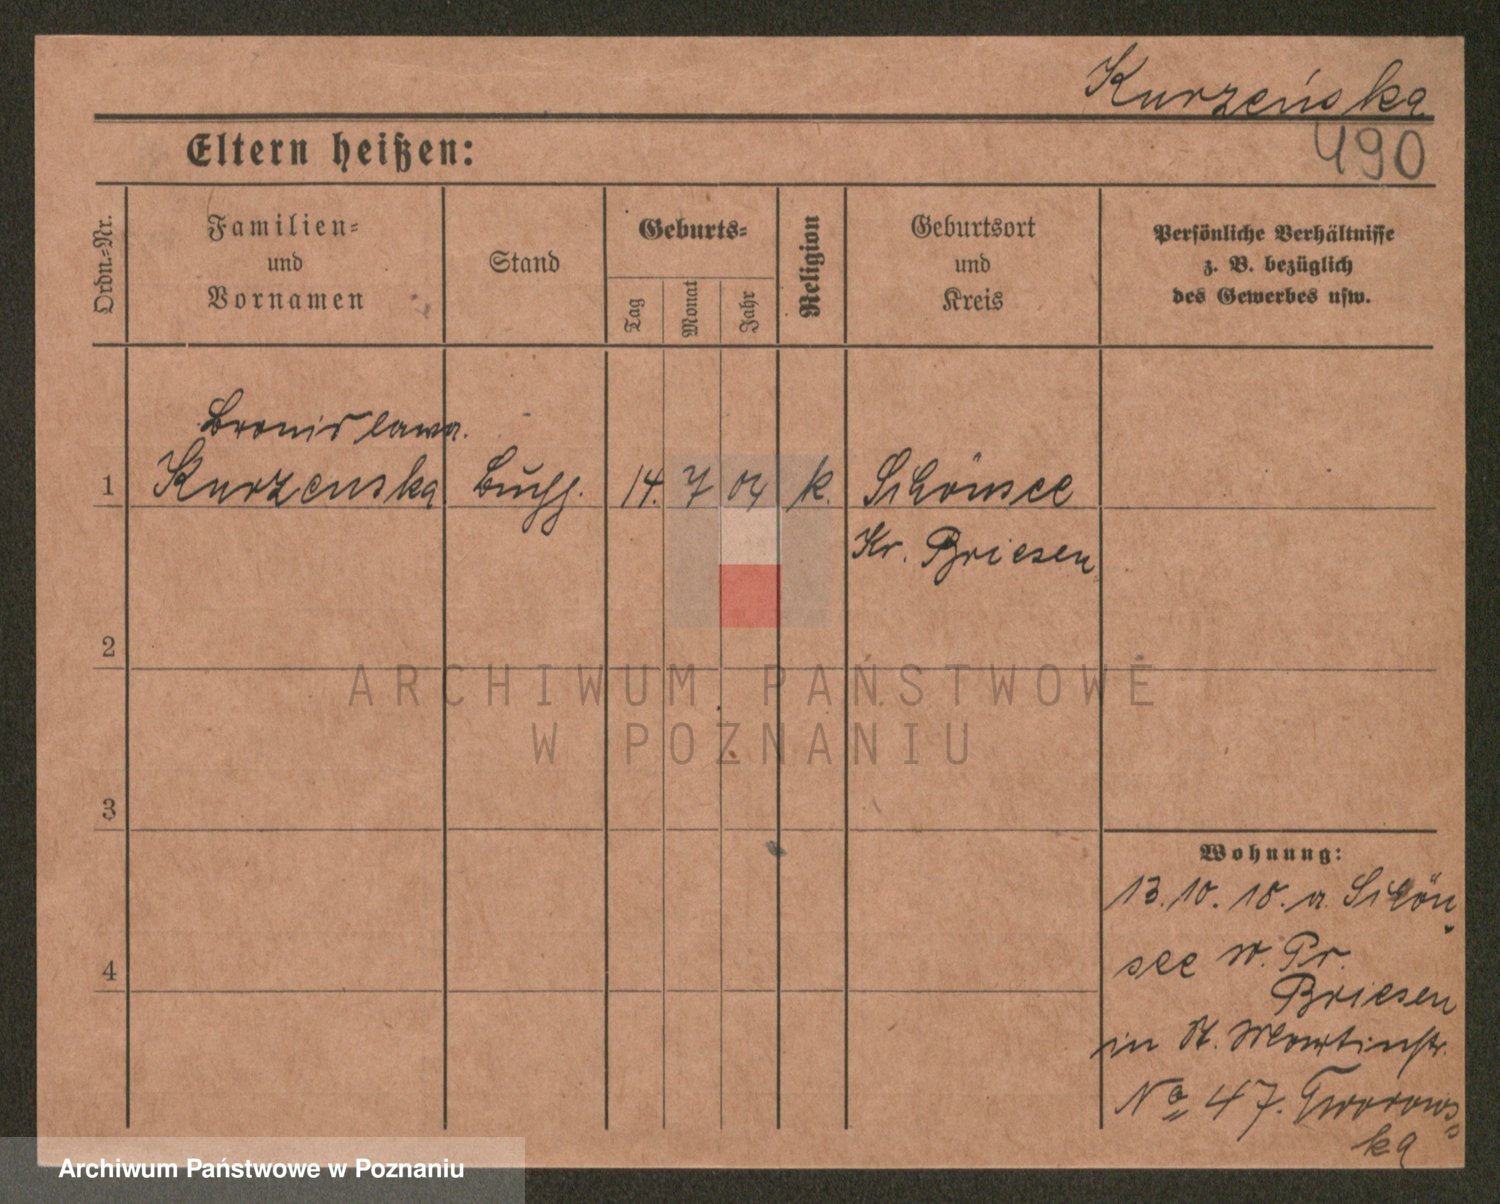 Kurzeńska
490
Eltern heißen:
Ordn.-Nr.
Familien-
und
Vornamen
Stand
Geburts-
Tag
Monat
Jahr
Religion
Geburtsort
und
Kreis
Persönliche Verhältnisse
z. B. bezüglich
des Gewerbes usw.
Bronislawa
1 Kurzenska Buchh. 14. 7 04 k. Schönsee
Kr. Briesen
2
3
4
Wohnung:
13. 10. 18. a. Schön
see W. Pr.
Briesen
in St. Martinstr.
No 47. Tworows
ka
ARCHIWUM PAŃSTWOWE
W POZNANIU
Archiwum Państwowe w Poznaniu